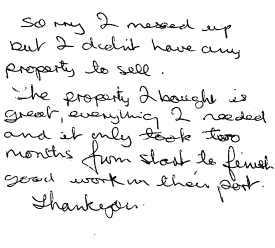 Sorry I messed up
but I didn't have any
property to sell.
The property I bought is
great, everything I needed
and it only took two
months from start to finish
good work on their part.
Thankyou.